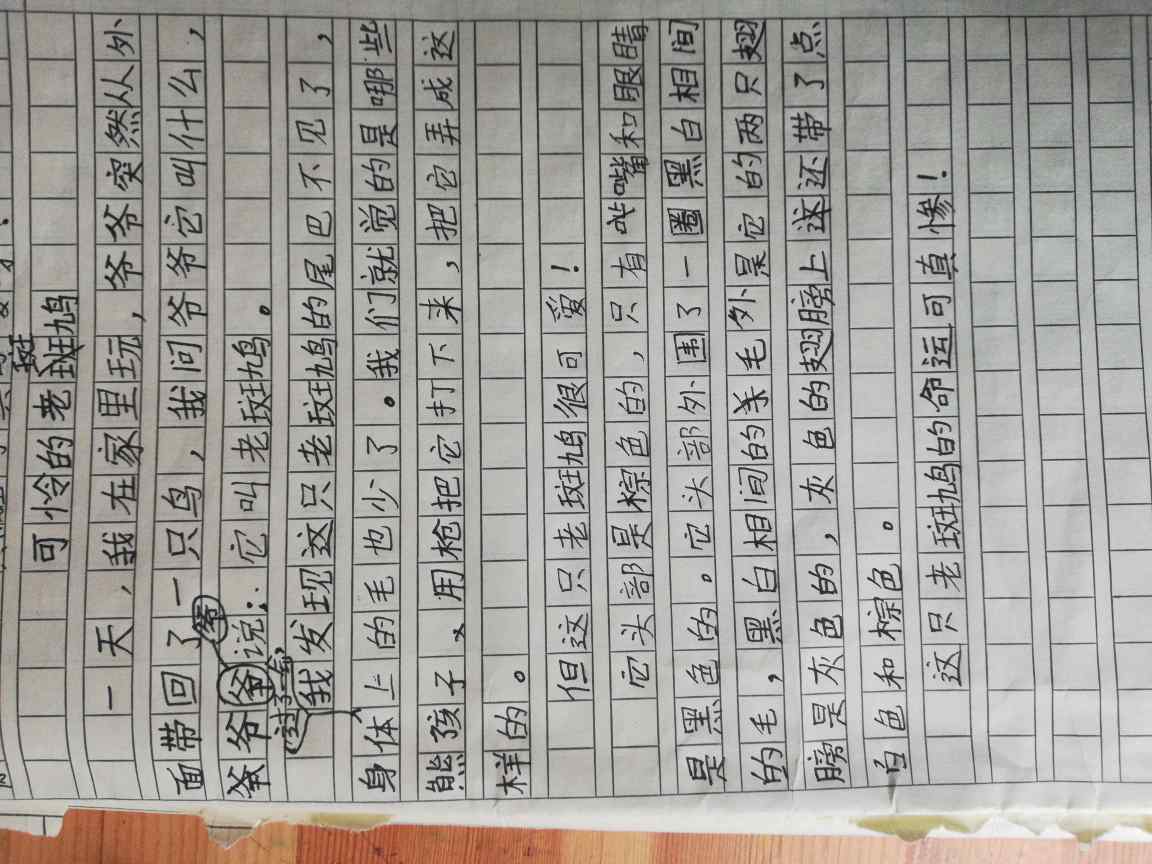 可怜的老斑鸠
一天，我在家里玩，爷爷突然从外
面带回了一只鸟，我问爷爷它叫什么，
爷爷说：它叫老斑鸠。
我发现这只老斑鸠的尾巴不见了，
身体上的毛也少了。我们就觉的是哪些
熊孩子、用枪把它打下来，把它弄成这
样的。
但这只老斑鸠很可爱！
它头部是棕色的，只有嘴和眼睛
是黑色的。它头部外围了一圈黑白相间
的毛，黑白相间的杀毛外是它的两只翅
膀是灰色的，灰色的翅膀上还带了点
白色和棕色。
这只老斑鸠的命运可真惨！